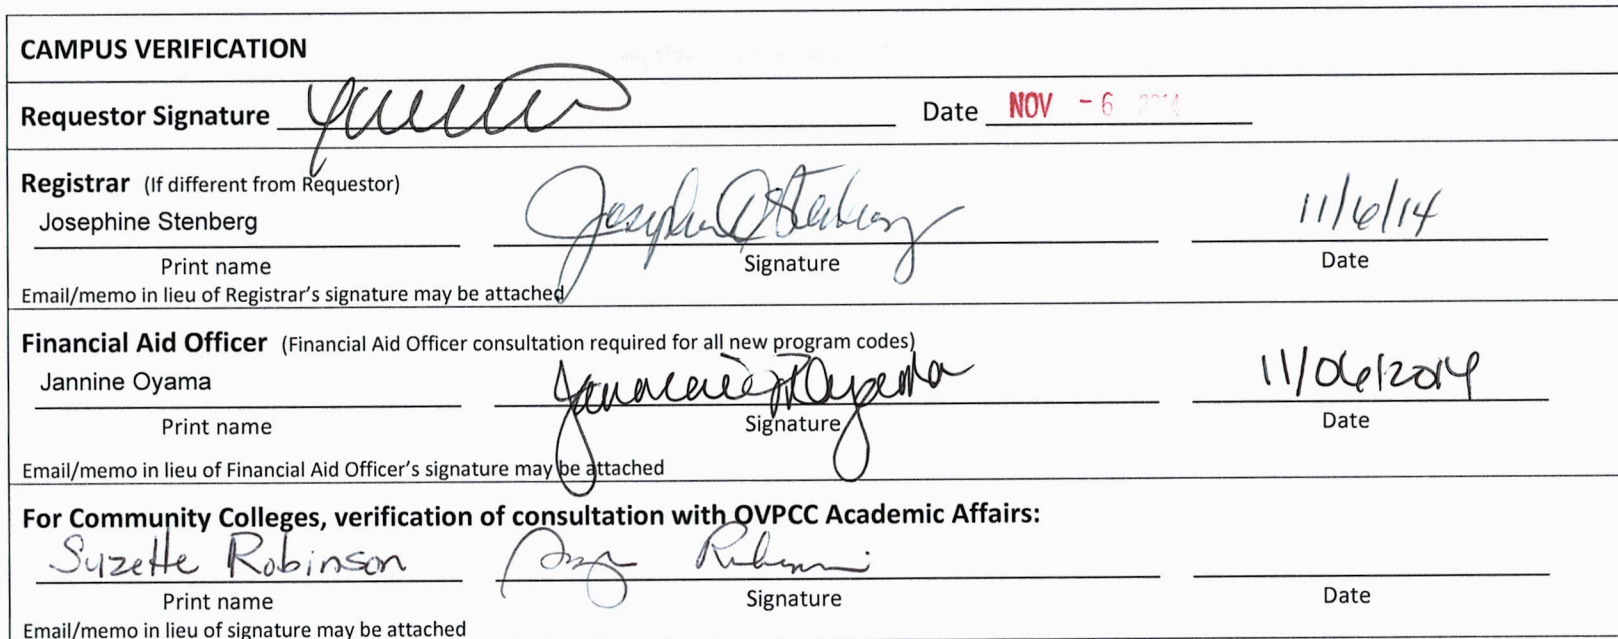 CAMPUS VERIFICATION
Requestor Signature Date NOV - 6 2014
Registrar (If different from Requestor)
Josephine Stenberg 11/6/14
Print name Signature Date
Email/memo in lieu of Registrar's signature may be attached
Financial Aid Officer (Financial Aid Officer consultation required for all new program codes)
Jannine Oyama 11/06/2014
Print name Signature Date
Email/memo in lieu of Financial Aid Officer's signature may be attached
For Community Colleges, verification of consultation with OVPCC Academic Affairs:
Suzette Robinson
Print name Signature Date
Email/memo in lieu of signature may be attached